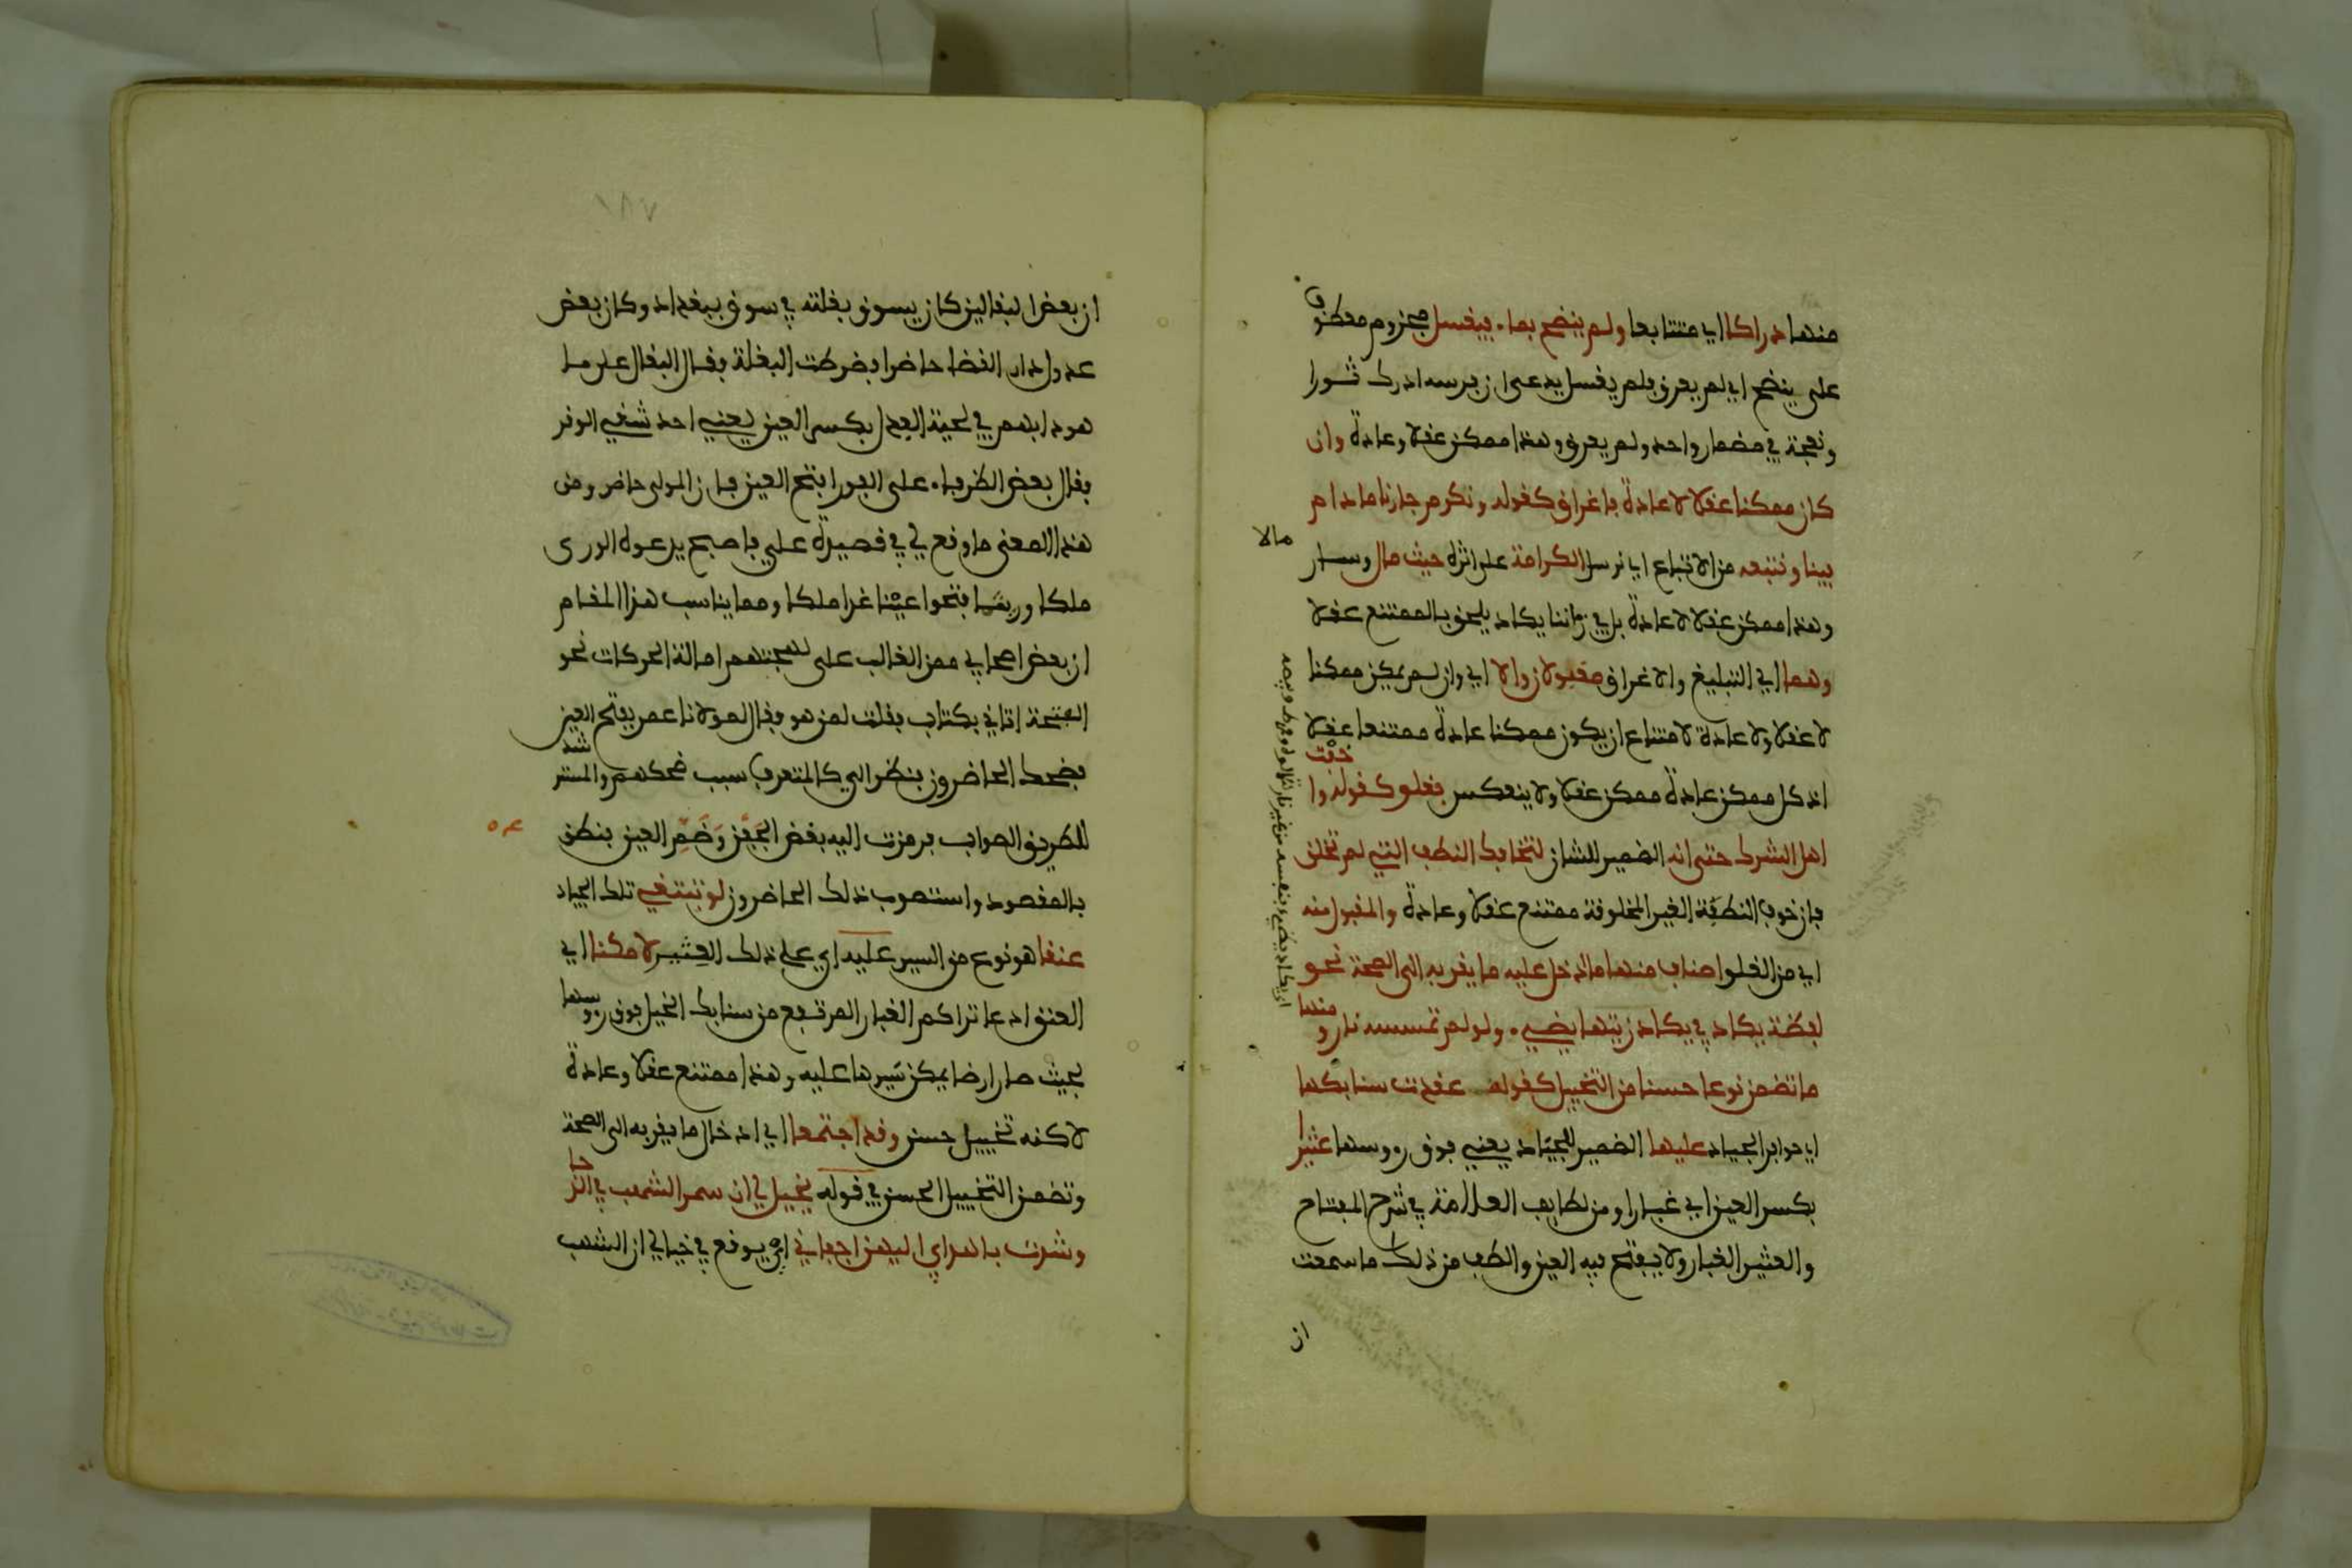 منهما دراكا اي متتابعا ولم ينضح بماء فيغسل مجزوم معطوف
على ينضح اي لم يعرق فلم يغسل يدعى ان فرسه ادرك ثورا
ونعجة في مضمار واحد ولم يعرق وهذا ممكن عقلا وعادة وان
كان ممكنا عقلا لا عادة فاغراق كقوله ونكرم جارنا مادام
فينا ونتبعه من الاتباع اي نرسل الكرامة على اثره حيث مال وسار
مالا
وهذا ممكن عقلا لا عادة بل في زماننا يكاد يلحق بالممتنع عقلا
وهما اي التبليغ والاغراق مقبولان والا اي وان لم يكن ممكنا
لا عقلا ولا عادة لامتناع ان يكون ممكنا عادة ممتنعا عقلا
اذ كل ممكن عادة ممكن عقلا ولا ينعكس فغلو كقوله وا
خفت
اهل الشرك حتى انه الضمير للشان لتخافك النطف التي لم تخلق
فان خوف النطفة الغير المخلوقة ممتنع عقلا وعادة والمقبول منه
اي من الغلو اصناف منها ما ادخل عليه ما يقربه الى الصحة نحو
لفظة يكاد في يكاد زيتها يضيء ولو لم تمسسه نار و
منها
ما تضمن نوعا حسنا من التخييل كقوله عقدت سنابكها
اي حوافر الجياد عليها الضمير للجياد يعني فوق رووسها عثيرا
بكسر العين اي غبارا ومن لطايف العلامة في شرح المفتاح
والعثير الغبار ولا يفتح فيه العين والطف من ذلك ما سمعت
ان
١٨٧
ان بعض البغالين كان يسوق بغلته في سوق ببغداد وكان بعض
عدول دار القضا حاضرا فضرطت البغلة فقال البغال على ما
هو دابهم في لحية العدل بكسر العين يعني احد شقي الوقر
فقال بعض الظرفاء على الفور افتح العين فان المولى حاضر ومن
هذا المعنى ما وقع لي في قصيدة علي فاصبح يدعوه الورى
ملكا وريثما فتحوا عينا غدا ملكا ومما يناسب هذا المقام
ان بعض اصحابي ممن الغالب على لهجتهم امالة الحركات نحو
الفتحة اتاني بكتاب فقلت لمن هو فقال لمولانا عمر بفتح العين
فضحك الحاضرون فنظر الي كالمتعرف سبب ضحكهم والمستر
شد
للطريق الصواب فرمزت اليه بغض الجفن وضم العين فتطن
بالمقصود واستصوب ذلك الحاضرون لو تبتغي تلك الجياد
عنقا هو نوع من السير عليه اي على ذلك العثير لامكنا اي
العنق ادعا تراكم الغبار المرتفع من سنابك الخيل فوق روسها
بحيث صار ارضا يمكن سيرها عليه وهذا ممتنع عقلا وعادة
لاكنه تخييل حسن وقد اجتمعا اي ادخال ما يقربه الى الصحة
وتضمن التخييل الحسن في قوله يخيل لي ان سمر الشهب في الد
جا
وشدت باهدابي اليهن اجفاني اي يوقع في خيالي ان الشهب